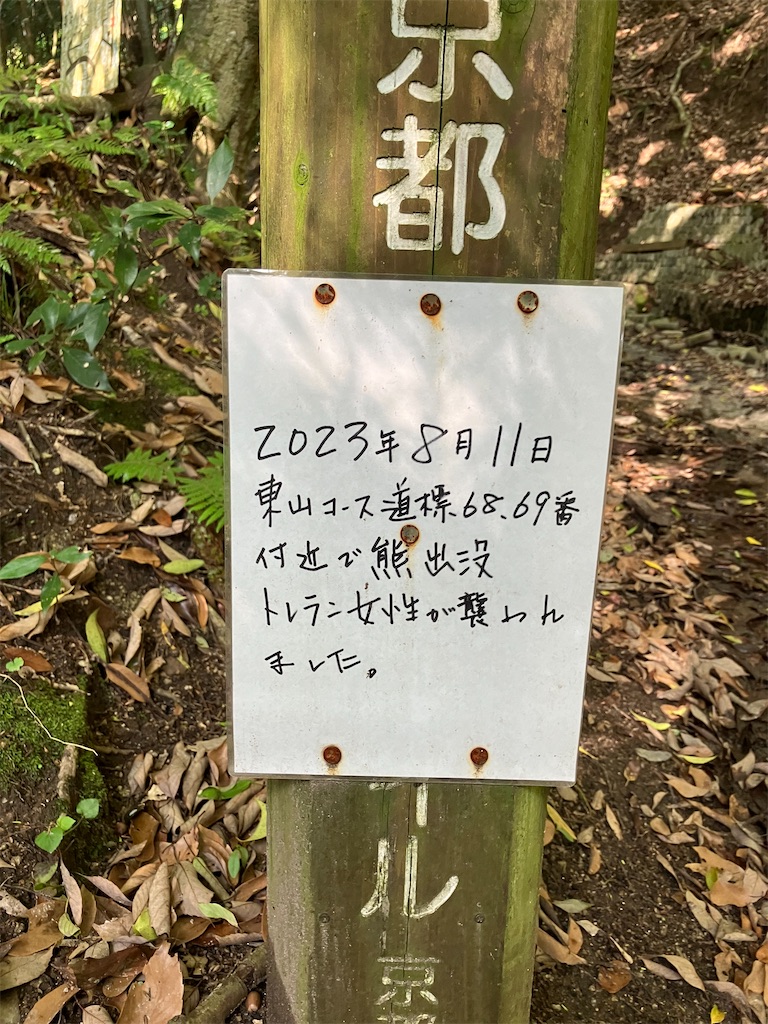 京
都
2023年8月11日
東山コース道標68、69番
付近で熊出没
トレラン女性が襲われ
ました。
ル
京